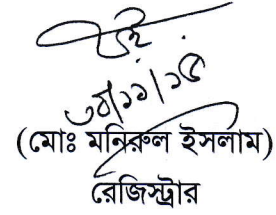 ৩০/১১/১৫
(মোঃ মনিরুল ইসলাম)
রেজিস্ট্রার